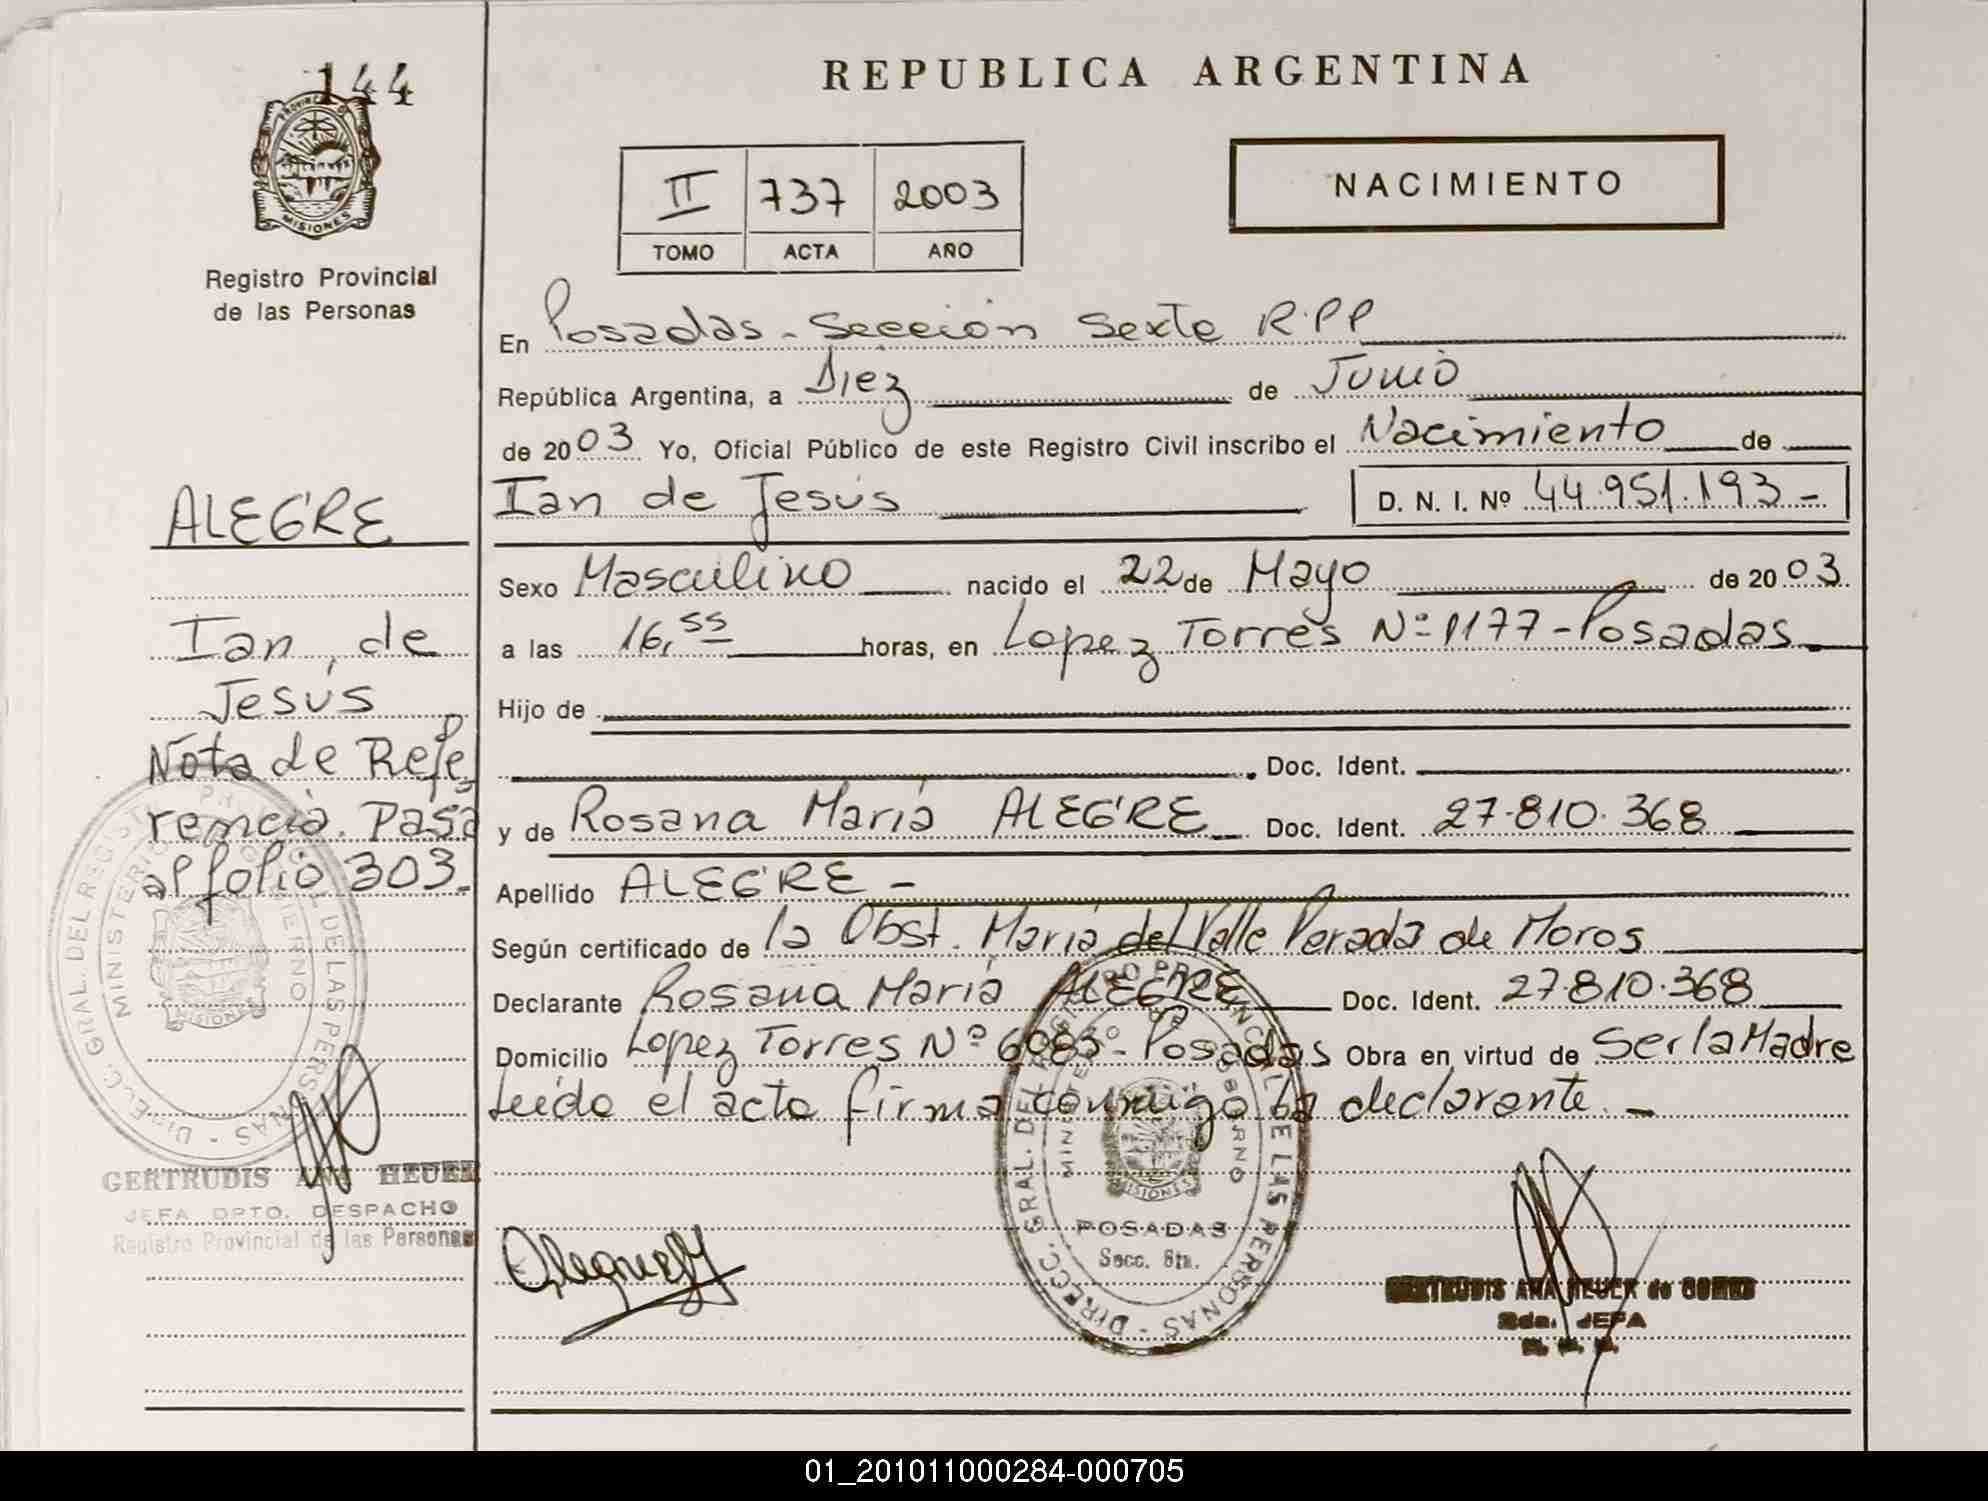 144
PROVINCIA DE
MISIONES
Registro Provincial
de las Personas
ALEGRE
Ian, de
Jesús
Nota de Refe
rencia. Pasa
al folio 303.-
DIRECC. GRAL. DEL REGISTRO PROVINCIAL DE LAS PERSONAS
MINISTERIO DE GOBIERNO
MISIONES
GERTRUDIS ANA HEUER
JEFA DPTO. DESPACHO
Registro Provincial de las Personas
REPUBLICA ARGENTINA
II 737 2003
TOMO ACTA AÑO
NACIMIENTO
En Posadas - Sección Sexta R.P.P
República Argentina, a Diez de Junio
de 2003 Yo, Oficial Público de este Registro Civil inscribo el Nacimiento de
Ian de Jesús D. N. I. Nº 44.951.193.-
Sexo Masculino nacido el 22 de Mayo de 2003
a las 16,55 horas, en Lopez Torres Nº 1177 - Posadas
Hijo de
Doc. Ident.
y de Rosana María ALEGRE Doc. Ident. 27.810.368
Apellido ALEGRE -
Según certificado de la Obst. María del Valle Parada de Moros
Declarante Rosana María ALEGRE Doc. Ident. 27.810.368
Domicilio Lopez Torres Nº 6083 - Posadas Obra en virtud de Ser la Madre
Leída el acta firma conmigo la declarante. -
DIRECC. GRAL. DEL REGISTRO PROVINCIAL DE LAS PERSONAS
MINISTERIO DE GOBIERNO
MISIONES
POSADAS
Secc. 6ta.
GERTRUDIS ANA HEUER de GOMES
2da. JEFA
01_201011000284-000705